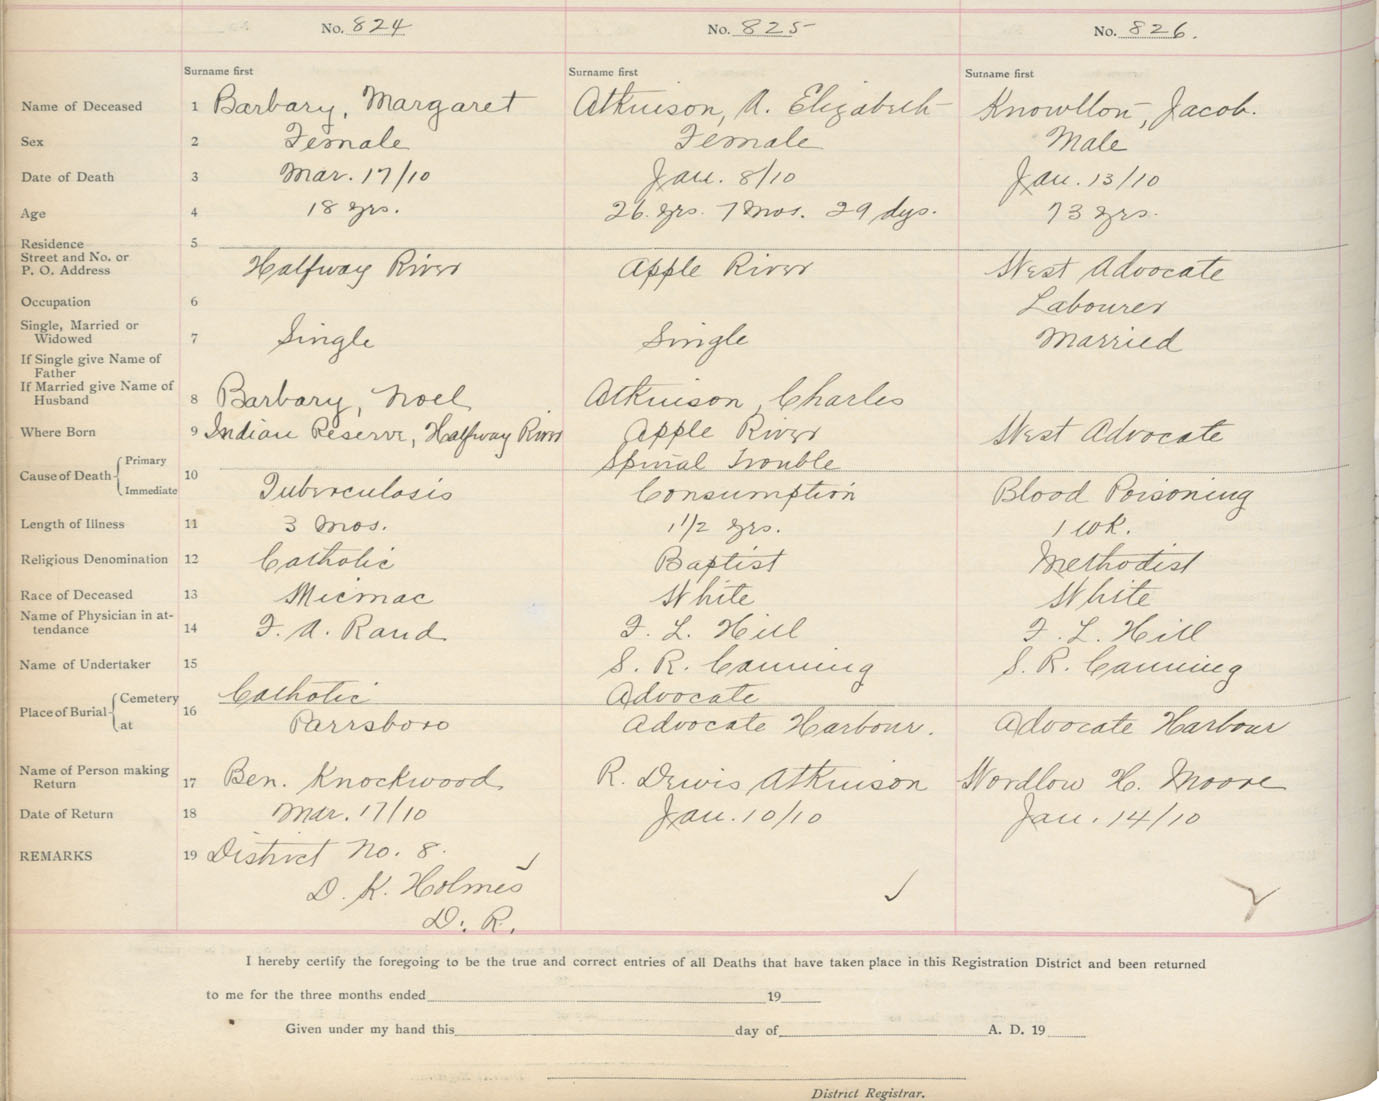 No. 824 No. 825 No. 826.
Surname first Surname first Surname first
Name of Deceased 1 Barbary, Margaret Atkinson, A. Elizabeth Knowlton, Jacob.
Sex 2 Female Female Male
Date of Death 3 Mar. 17/10 Jan. 8/10 Jan. 13/10
Age 4 18 yrs. 26 yrs. 7 mos. 29 dys. 73 yrs.
Residence 5
Street and No. or
P. O. Address Halfway River Apple River West Advocate
Occupation 6 Labourer
Single, Married or
Widowed 7 Single Single Married
If Single give Name of
Father
If Married give Name of
Husband 8 Barbary, Noel Atkinson, Charles
Where Born 9 Indian Reserve, Halfway River Apple River West Advocate
Cause of Death Primary 10 Spinal Trouble
Immediate Tuberculosis Consumption Blood Poisoning
Length of Illness 11 3 mos. 1 1/2 yrs. 1 wk.
Religious Denomination 12 Catholic Baptist Methodist
Race of Deceased 13 Micmac White White
Name of Physician in at-
tendance 14 F. A. Rand F. L. Hill F. L. Hill
Name of Undertaker 15 S. R. Canning S. R. Canning
Place of Burial Cemetery 16 Catholic Advocate
at Parrsboro Advocate Harbour. Advocate Harbour
Name of Person making
Return 17 Ben. Knockwood R. Dewis Atkinson Wordlow H. Moore
Date of Return 18 Mar. 17/10 Jan. 10/10 Jan. 14/10
REMARKS 19 District No. 8.
D. K. Holmes
D. R.
I hereby certify the foregoing to be the true and correct entries of all Deaths that have taken place in this Registration District and been returned
to me for the three months ended 19
Given under my hand this day of A. D. 19
District Registrar.